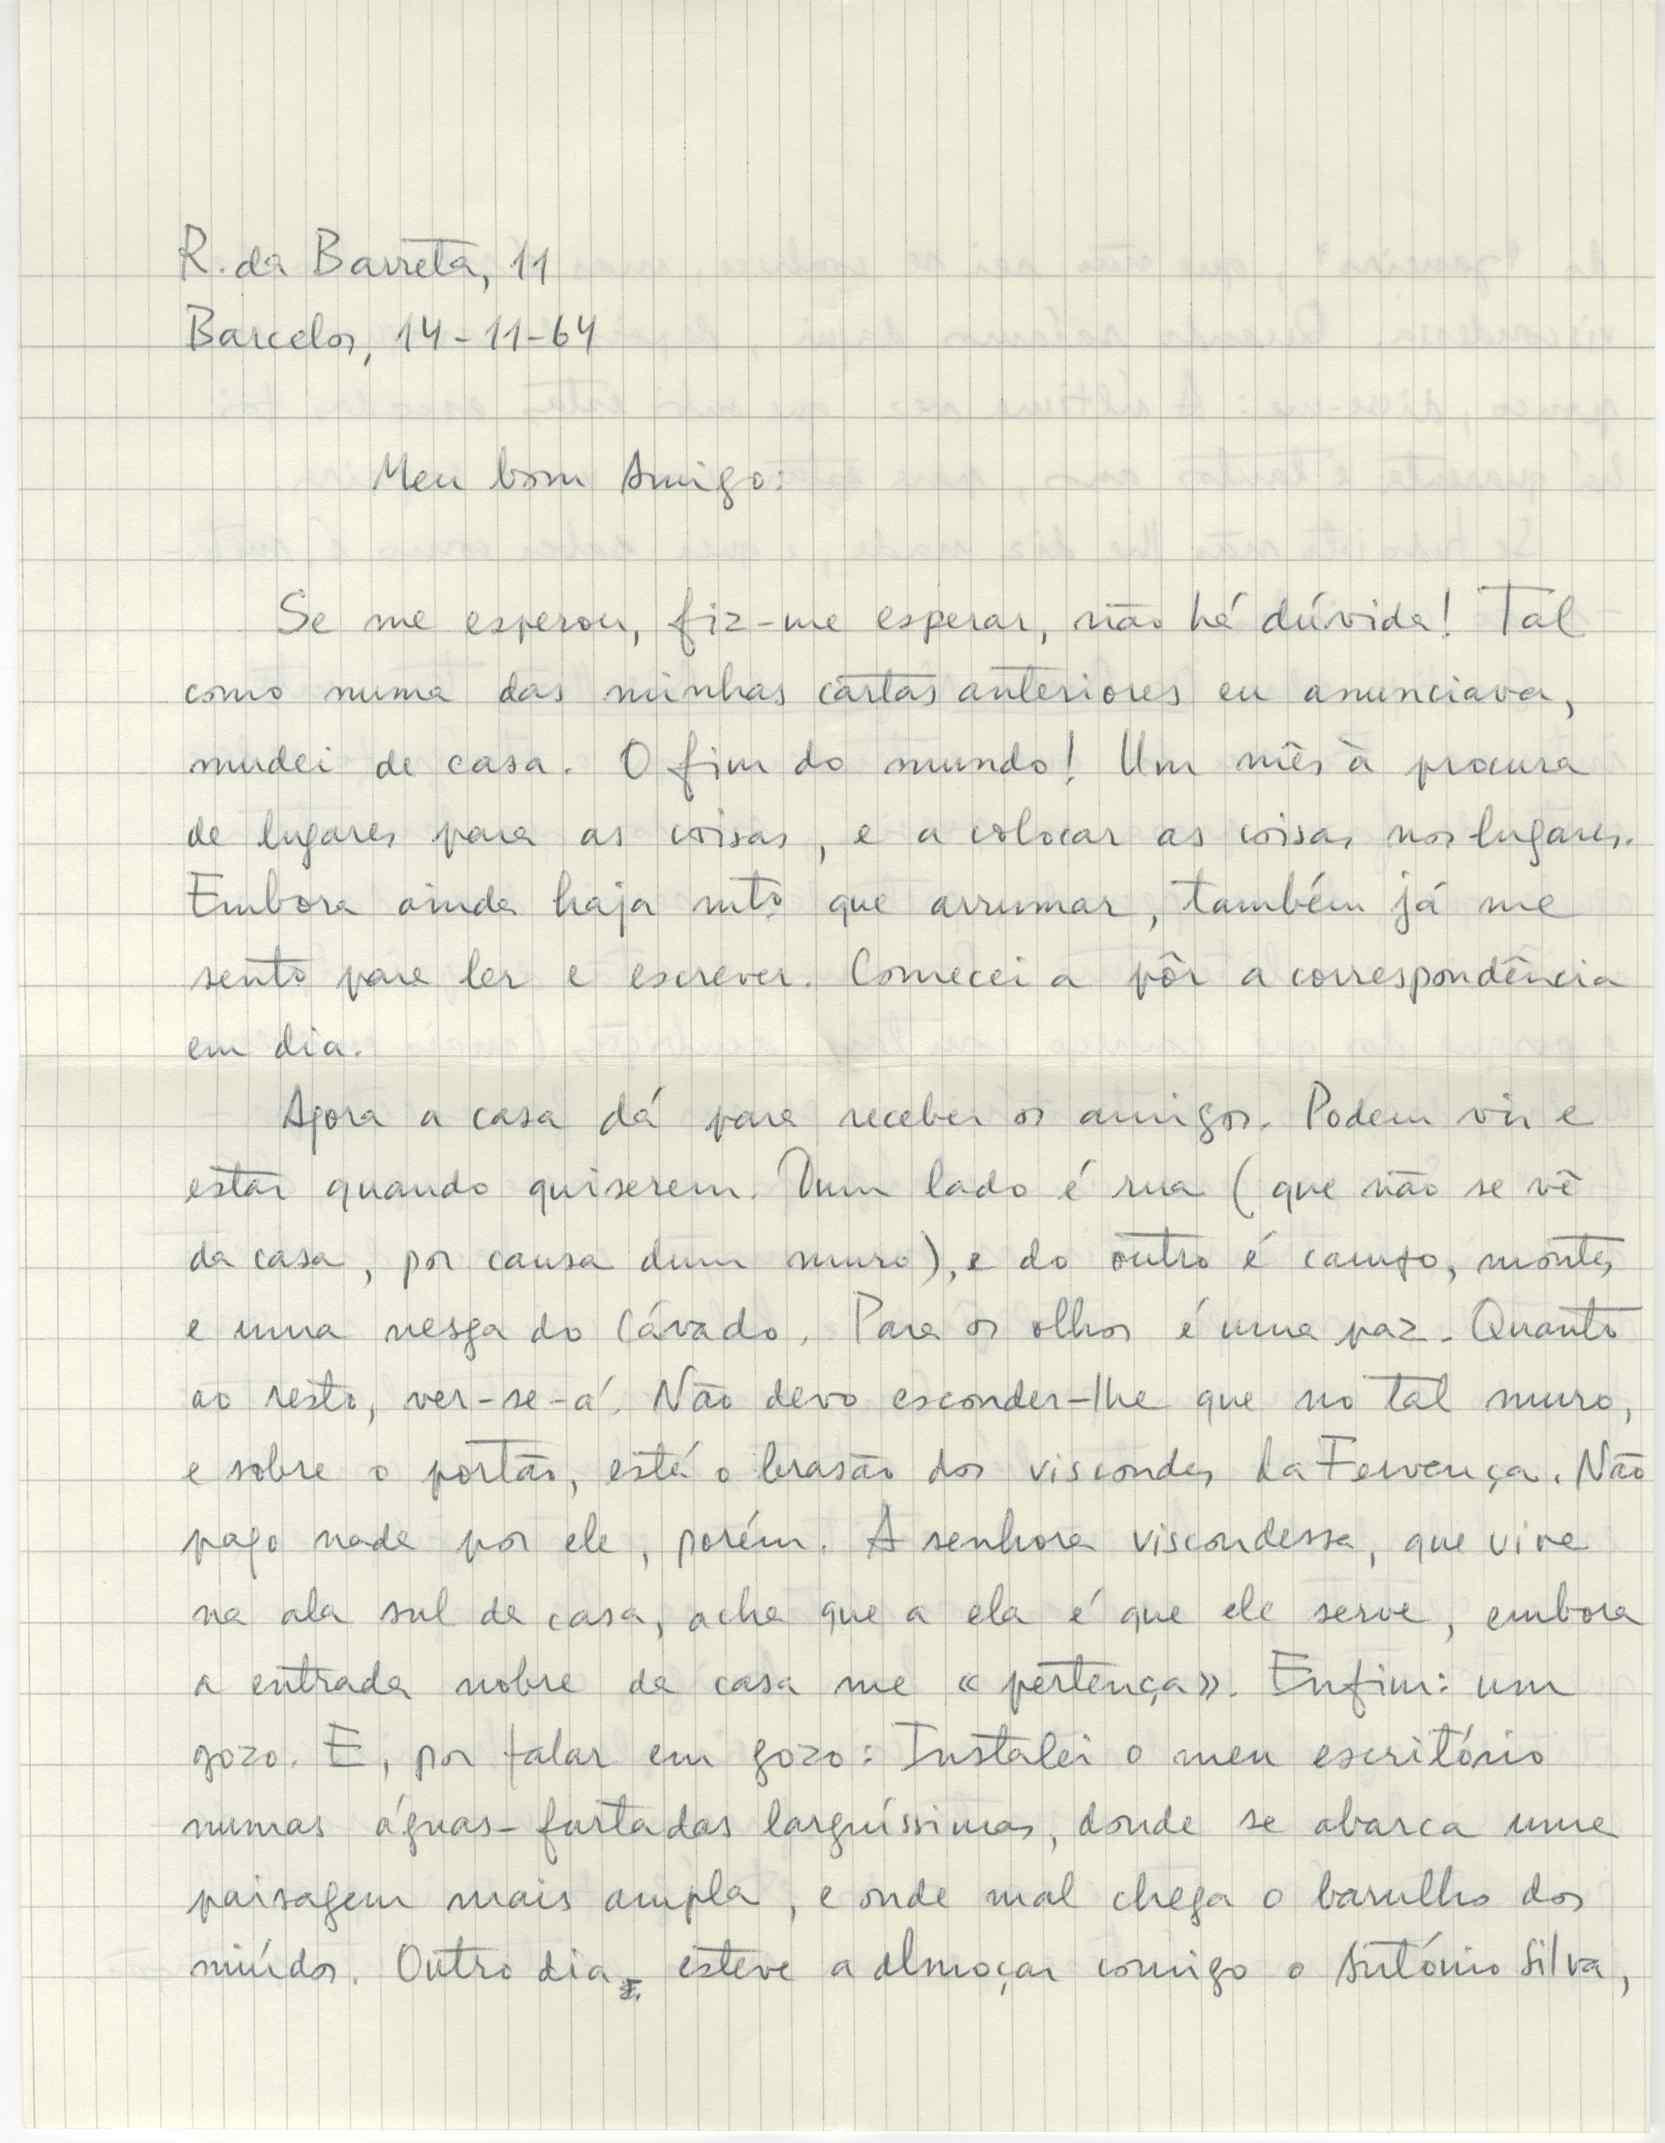 R. da Barreta, 11
Barcelos, 14-11-64
Meu bom Amigo:
Se me esperou, fiz-me esperar, não há dúvida! Tal
como numa das minhas cartas anteriores eu anunciava,
mudei de casa. O fim do mundo! Um mês à procura
de lugares para as coisas, e a colocar as coisas nos lugares.
Embora ainda haja mto que arrumar, também já me
sento para ler e escrever. Comecei a pôr a correspondência
em dia.
Agora a casa dá para receber os amigos. Podem vir e
estar quando quiserem. Dum lado é rua (que não se vê
da casa, por causa dum muro), e do outro é campo, montes,
e uma nesga do Cávado. Para os olhos é uma paz. Quanto
ao resto, ver-se-á. Não devo esconder-lhe que no tal muro,
e sobre o portão, está o brasão dos viscondes da Fervença. Não
pago nada por ele, porém. A senhora viscondessa, que vive
na ala sul da casa, acha que a ela é que ele serve, embora
a entrada nobre da casa me «pertença». Enfim: um
gozo. E, por falar em gozo: Instalei o meu escritório
numas águas-furtadas larguíssimas, donde se abarca uma
paisagem mais ampla, e onde mal chega o barulho dos
miúdos. Outro dia, esteve a almoçar comigo o António Silva,